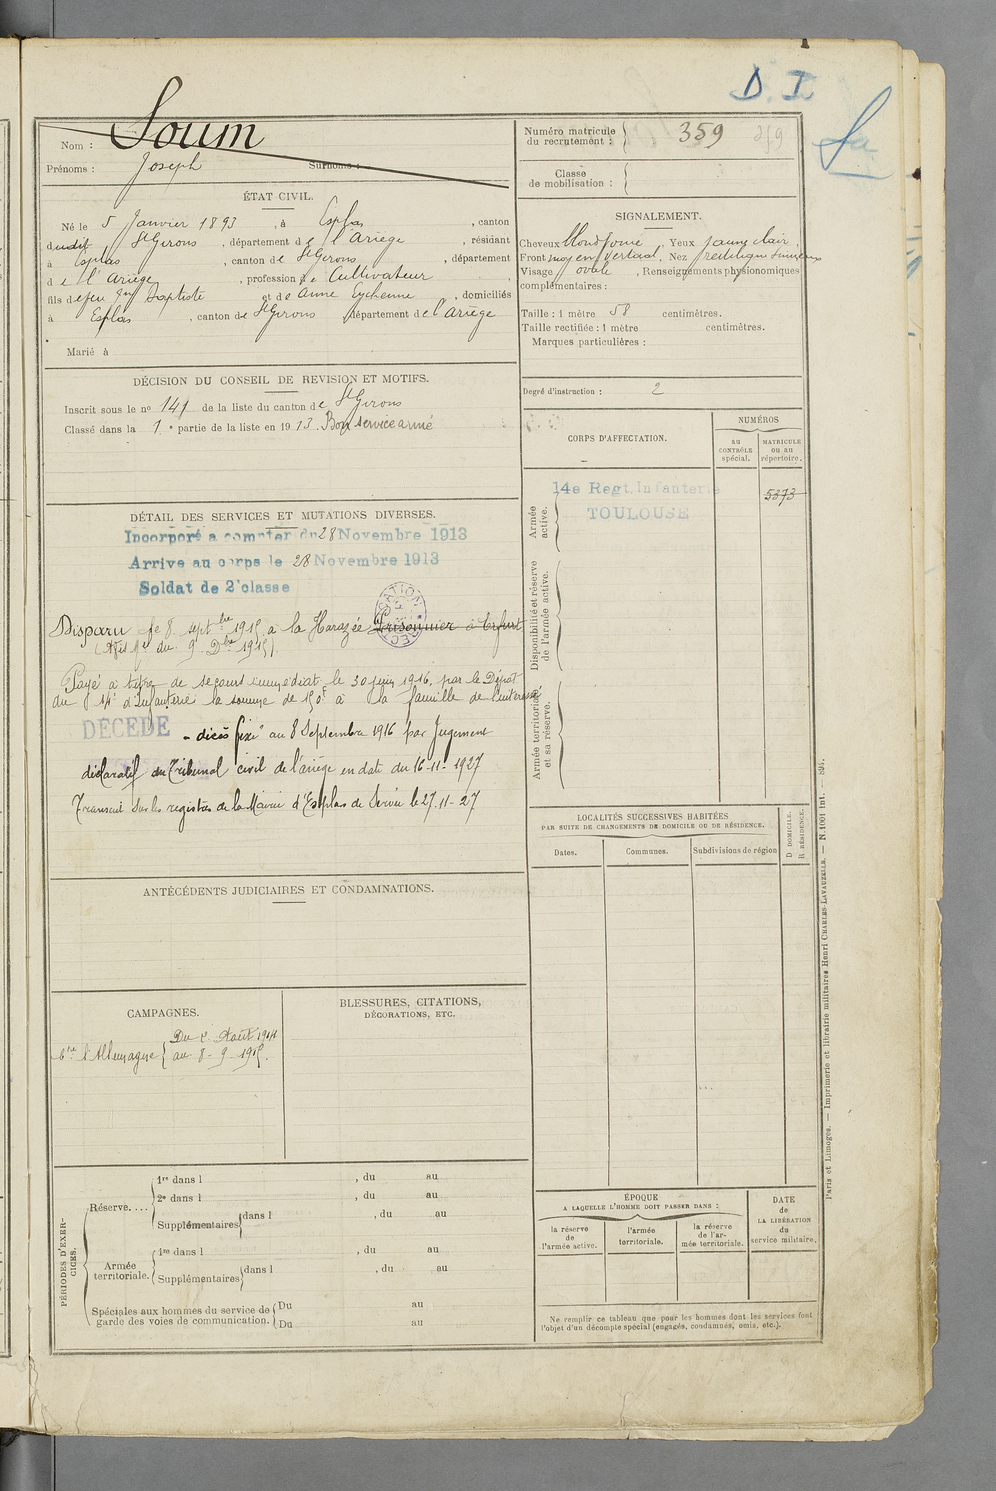 D. I.
Sa
Nom : Soum
Prénoms : Joseph Surnoms :
ÉTAT CIVIL.
Né le 5 Janvier 1893, à Esplas, canton
dudit St Girons, département de l'Ariège, résidant
à Esplas, canton de St Girons, département
de l'Ariège, profession de Cultivateur
fils de feu Jn Baptiste et de Anne Eychenne, domiciliés
à Esplas, canton de St Girons, département de l'Ariège
Marié à
DÉCISION DU CONSEIL DE REVISION ET MOTIFS.
Inscrit sous le no 141 de la liste du canton de St Girons
Classé dans la 1e partie de la liste en 1913. Bon service armé
DÉTAIL DES SERVICES ET MUTATIONS DIVERSES.
Incorporé a compter du 28 Novembre 1913
Arrive au corps le 28 Novembre 1913
Soldat de 2e classe
Disparu le 8 septbre 1915 à la Harazée Prisonnier à Erfurt
(Avis du 9 Dbre 1915).
Payé à titre de secours immédiat le 30 juin 1916, par le Dépôt
du 14e d'Infanterie la somme de 150f à la famille de l'intéressé
DÉCÉDÉ - décès fixé au 8 Septembre 1916 par Jugement
déclaratif du Tribunal civil de l'ariège en date du 16-11-1927
Transcrit sur les registres de la Mairie d'Esplas de Serou le 27.11-27
ANTÉCÉDENTS JUDICIAIRES ET CONDAMNATIONS.
CAMPAGNES.
Ctre l'Allemagne { Du 2 Août 1914
au 8-9-1915.
BLESSURES, CITATIONS,
DÉCORATIONS, ETC.
PÉRIODES D'EXERCICES.
Réserve....
1re dans l , du au
2e dans l , du au
Supplémentaires dans l , du au
Armée territoriale.
1re dans l , du au
Supplémentaires dans l , du au
Spéciales aux hommes du service de Du au
garde des voies de communication. Du au
Numéro matricule
du recrutement : 359
Classe
de mobilisation :
SIGNALEMENT.
Cheveux blond foncé, Yeux jaune clair,
Front moyen vertical, Nez rectiligne sinueux
Visage ovale, Renseignements physionomiques
complémentaires :
Taille : 1 mètre 58 centimètres.
Taille rectifiée : 1 mètre centimètres.
Marques particulières :
Degré d'instruction : 2
CORPS D'AFFECTATION.
NUMÉROS
au CONTRÔLE spécial.
MATRICULE ou au répertoire.
Armée active.
14e Regt. Infanterie
TOULOUSE
5373
Disponibilité et réserve de l'armée active.
Armée territoriale et sa réserve.
LOCALITÉS SUCCESSIVES HABITÉES
PAR SUITE DE CHANGEMENTS DE DOMICILE OU DE RÉSIDENCE.
D. DOMICILE.
R. RÉSIDENCE.
Dates. Communes. Subdivisions de région
ÉPOQUE
A LAQUELLE L'HOMME DOIT PASSER DANS :
la réserve de l'armée active.
l'armée territoriale.
la réserve de l'armée territoriale.
DATE
de
LA LIBÉRATION
du
service militaire.
Ne remplir ce tableau que pour les hommes dont les services font
l'objet d'un décompte spécial (engagés, condamnés, omis, etc.).
Paris et Limoges. — Imprimerie et librairie militaires Henri CHARLES-LAVAUZELLE. — N. 1001 int. —